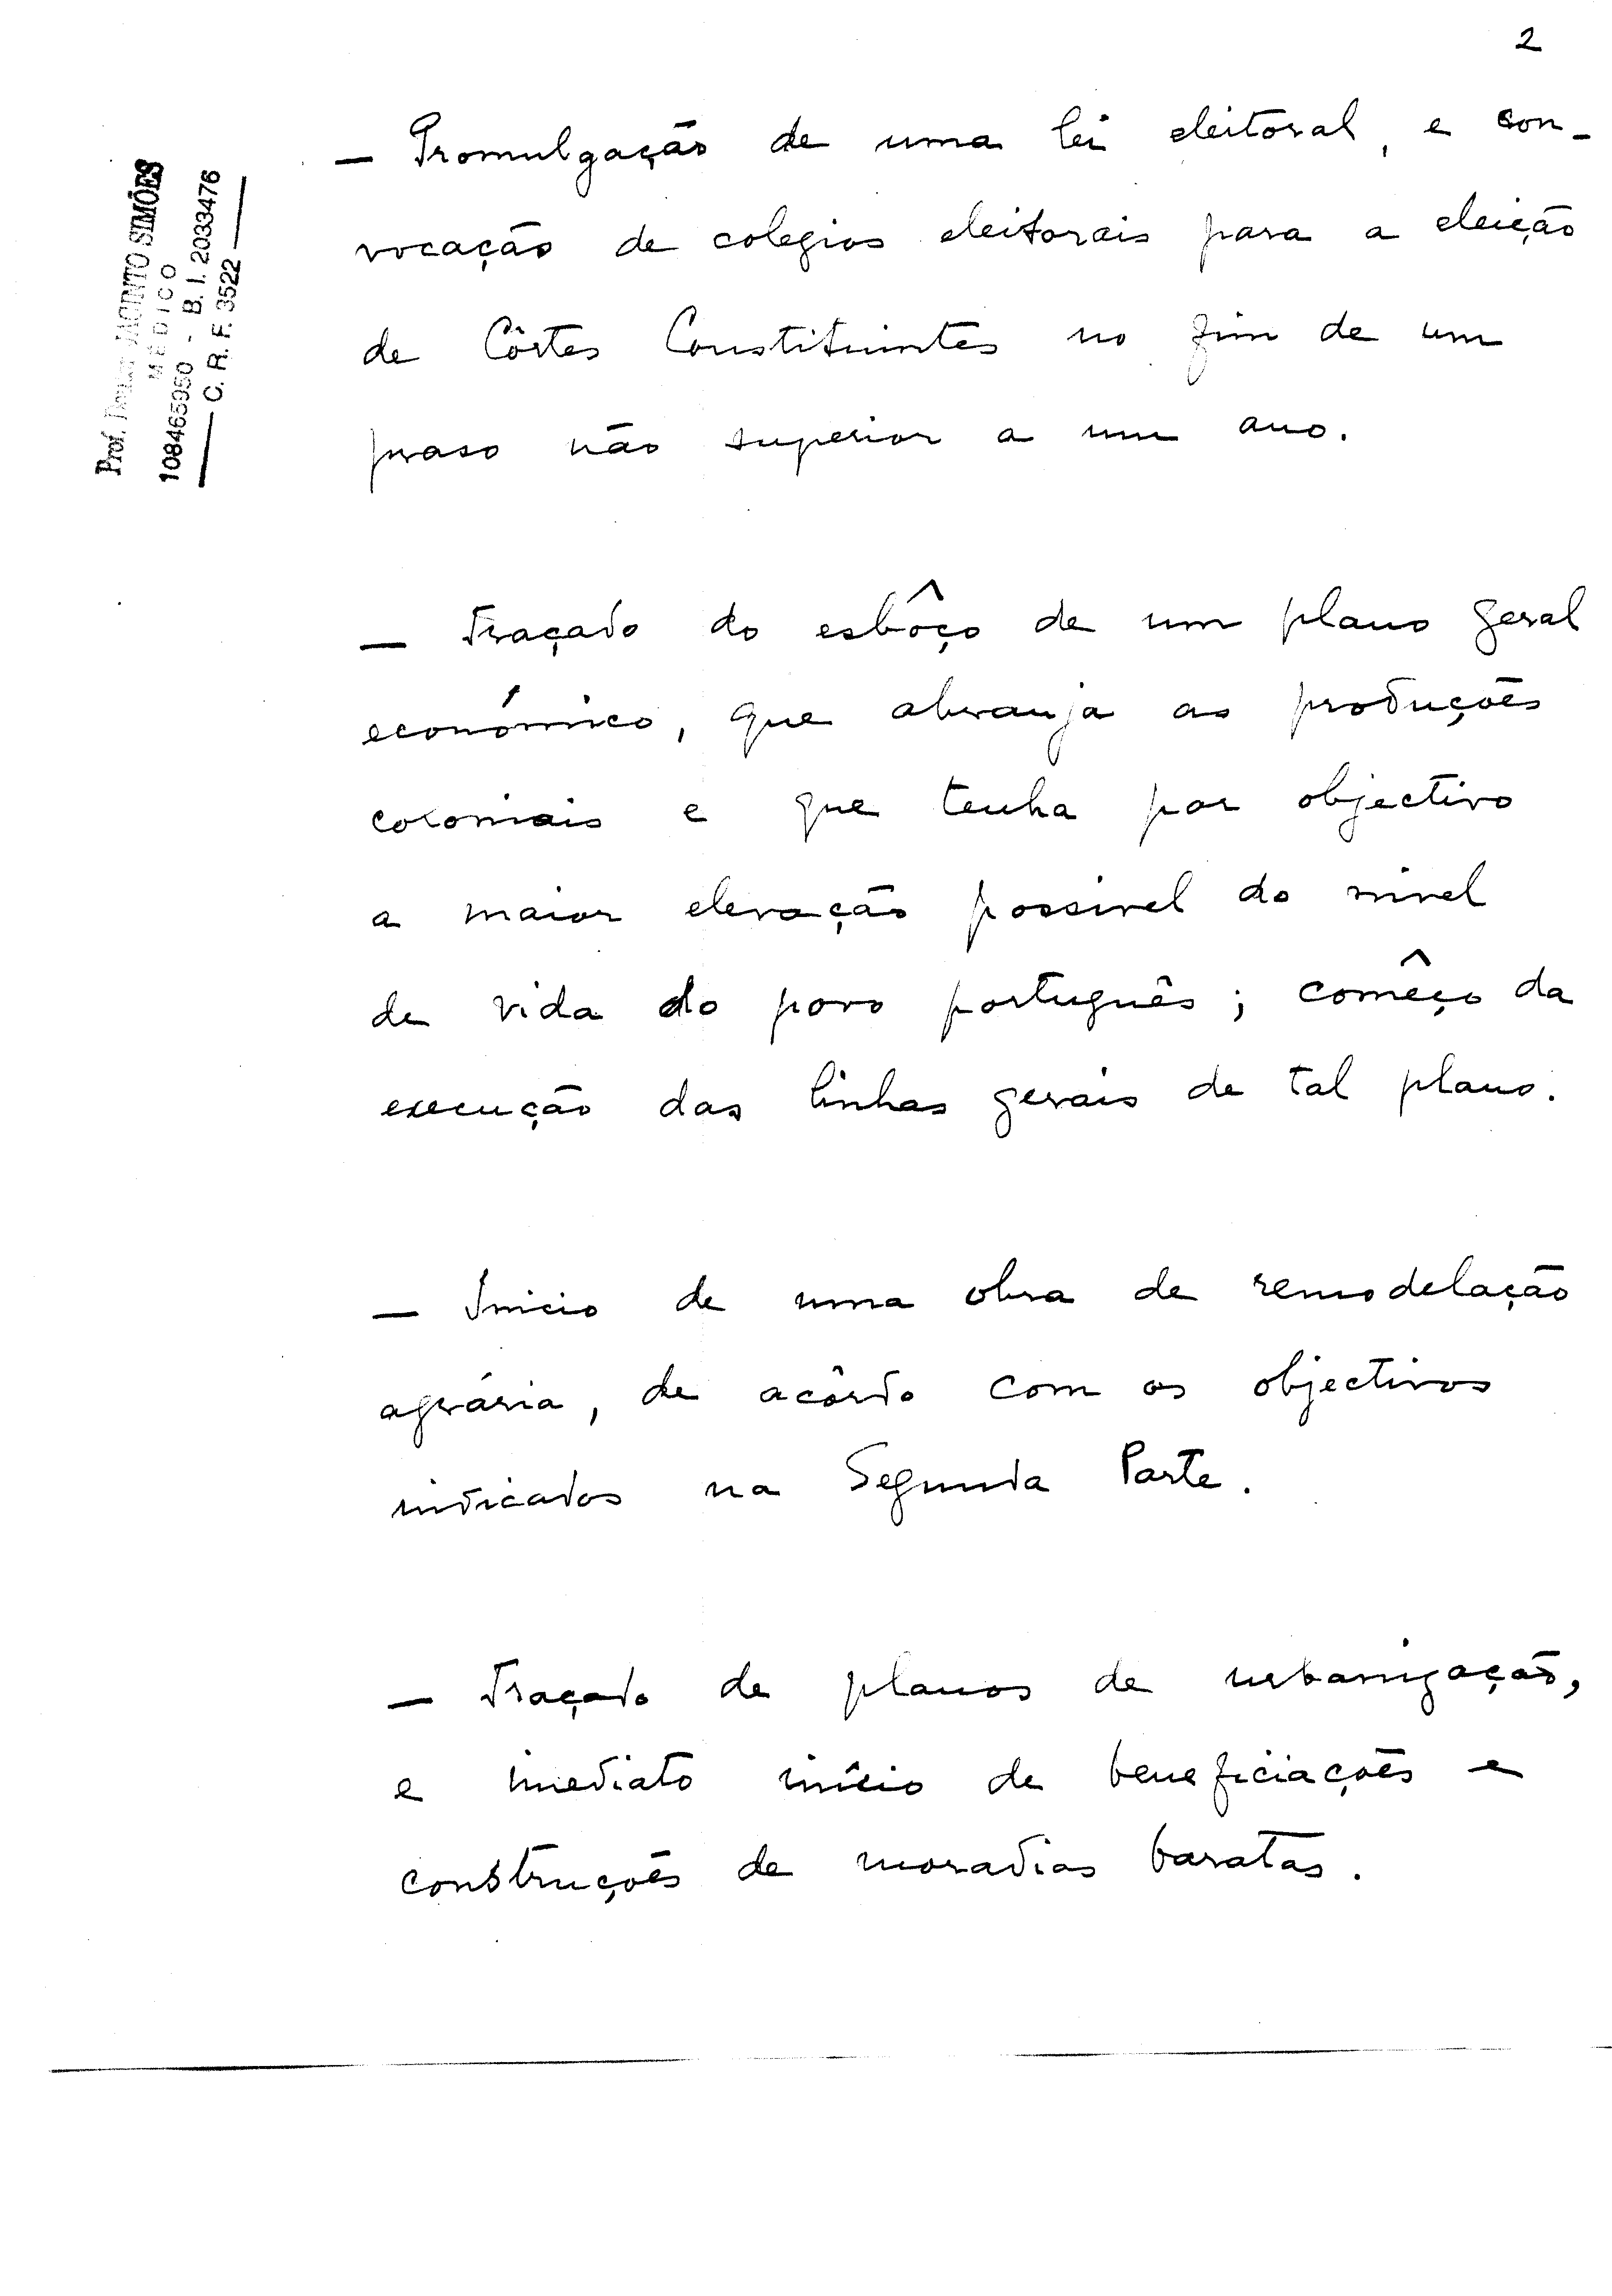 2
Prof. Doutor JACINTO SIMÕES
MÉDICO
108465950 - B. I. 2033476
C. R. F. 3522
— Promulgação de uma lei eleitoral, e con-
vocação de colegios eleitorais para a eleição
de Côrtes Constituintes no fim de um
praso não superior a um ano.
— Traçado do esbôço de um plano geral
económico, que abranja as produções
coloniais e que tenha por objectivo
a maior elevação possivel do nivel
de vida do povo português; comêço da
execução das linhas gerais de tal plano.
— Inicio de uma obra de remodelação
agrária, de acôrdo com os objectivos
indicados na Segunda Parte.
— Traçado de planos de urbanização,
e imediato início de beneficiações e
construções de moradias baratas.